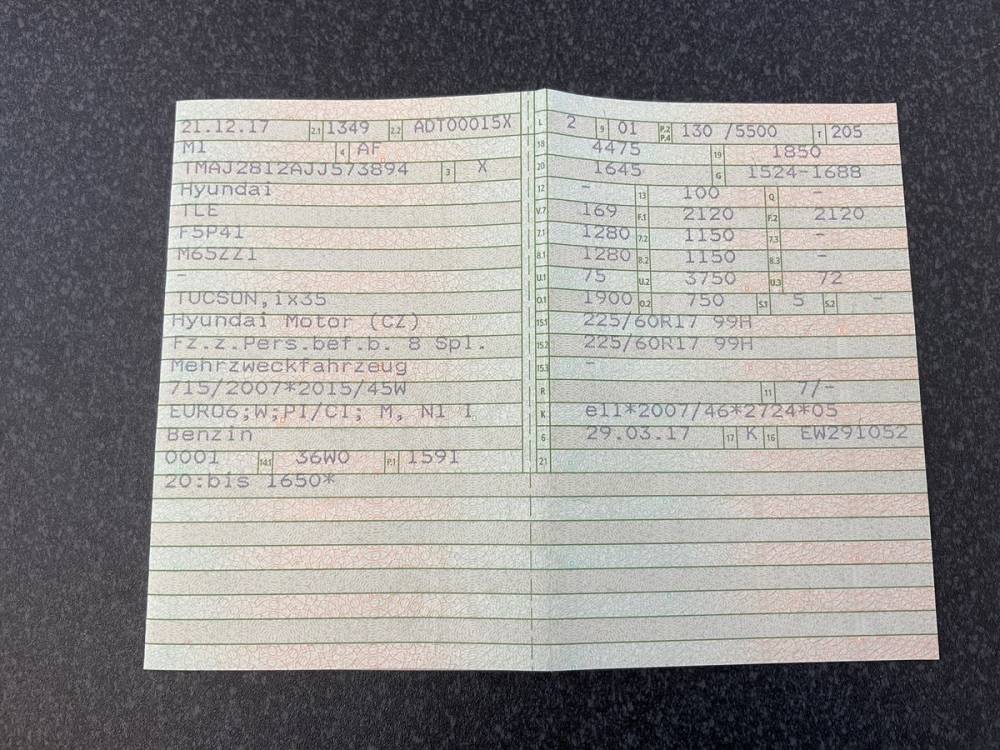 21.12.17 2.1 1349 2.2 ADT00015X
M1 4 AF
TMAJ2812AJJ573894 3 X
Hyundai
TLE
F5P41
M65ZZ1
-
TUCSON,ix35
Hyundai Motor (CZ)
Fz.z.Pers.bef.b. 8 Spl.
Mehrzweckfahrzeug
715/2007*2015/45W
EURO6;W;PI/CI; M, N1 I
Benzin
0001 14.1 36W0 P.1 1591
20:bis 1650*
L 2 9 01 P.2 P.4 130 /5500 T 205
18 4475 19 1850
20 1645 G 1524-1688
12 - 13 100 Q -
V.7 169 F.1 2120 F.2 2120
7.1 1280 7.2 1150 7.3 -
8.1 1280 8.2 1150 8.3 -
U.1 75 U.2 3750 U.3 72
O.1 1900 O.2 750 S.1 5 S.2 -
15.1 225/60R17 99H
15.2 225/60R17 99H
15.3 -
R 11 7/-
K e11*2007/46*2724*05
6 29.03.17 17 K 16 EW291052
21